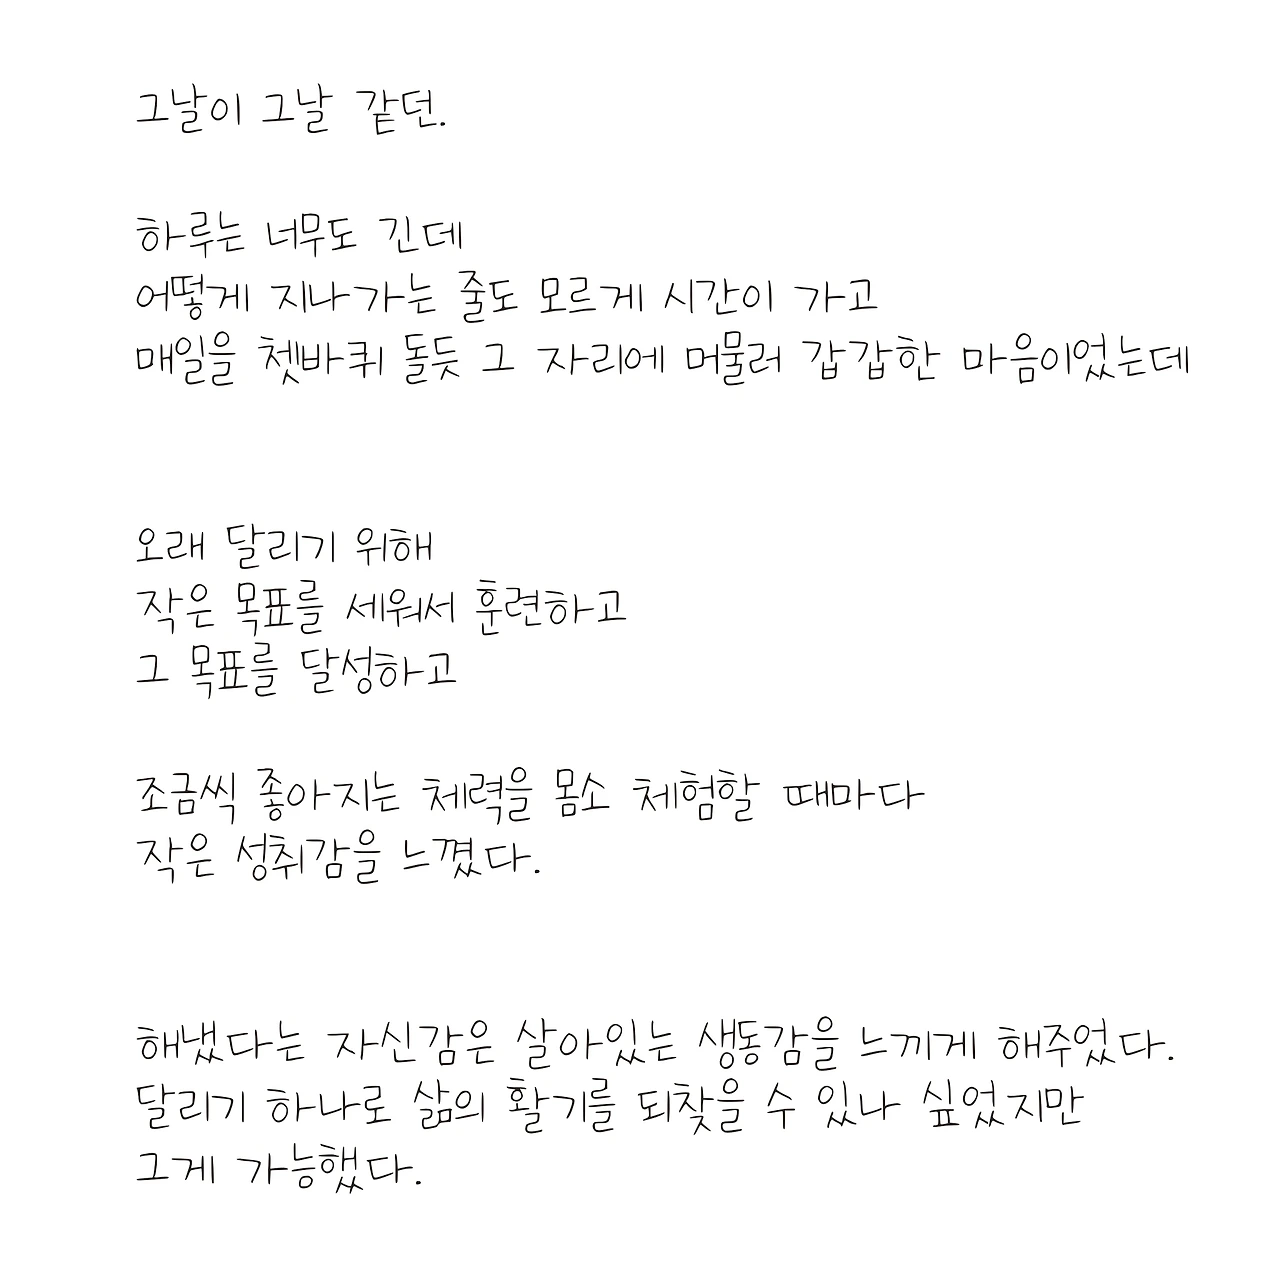 그날이 그날 같던.
하루는 너무도 긴데
어떻게 지나가는 줄도 모르게 시간이 가고
매일을 쳇바퀴 돌듯 그 자리에 머물러 갑갑한 마음이었는데
오래 달리기 위해
작은 목표를 세워서 훈련하고
그 목표를 달성하고
조금씩 좋아지는 체력을 몸소 체험할 때마다
작은 성취감을 느꼈다.
해냈다는 자신감은 살아있는 생동감을 느끼게 해주었다.
달리기 하나로 삶의 활기를 되찾을 수 있나 싶었지만
그게 가능했다.